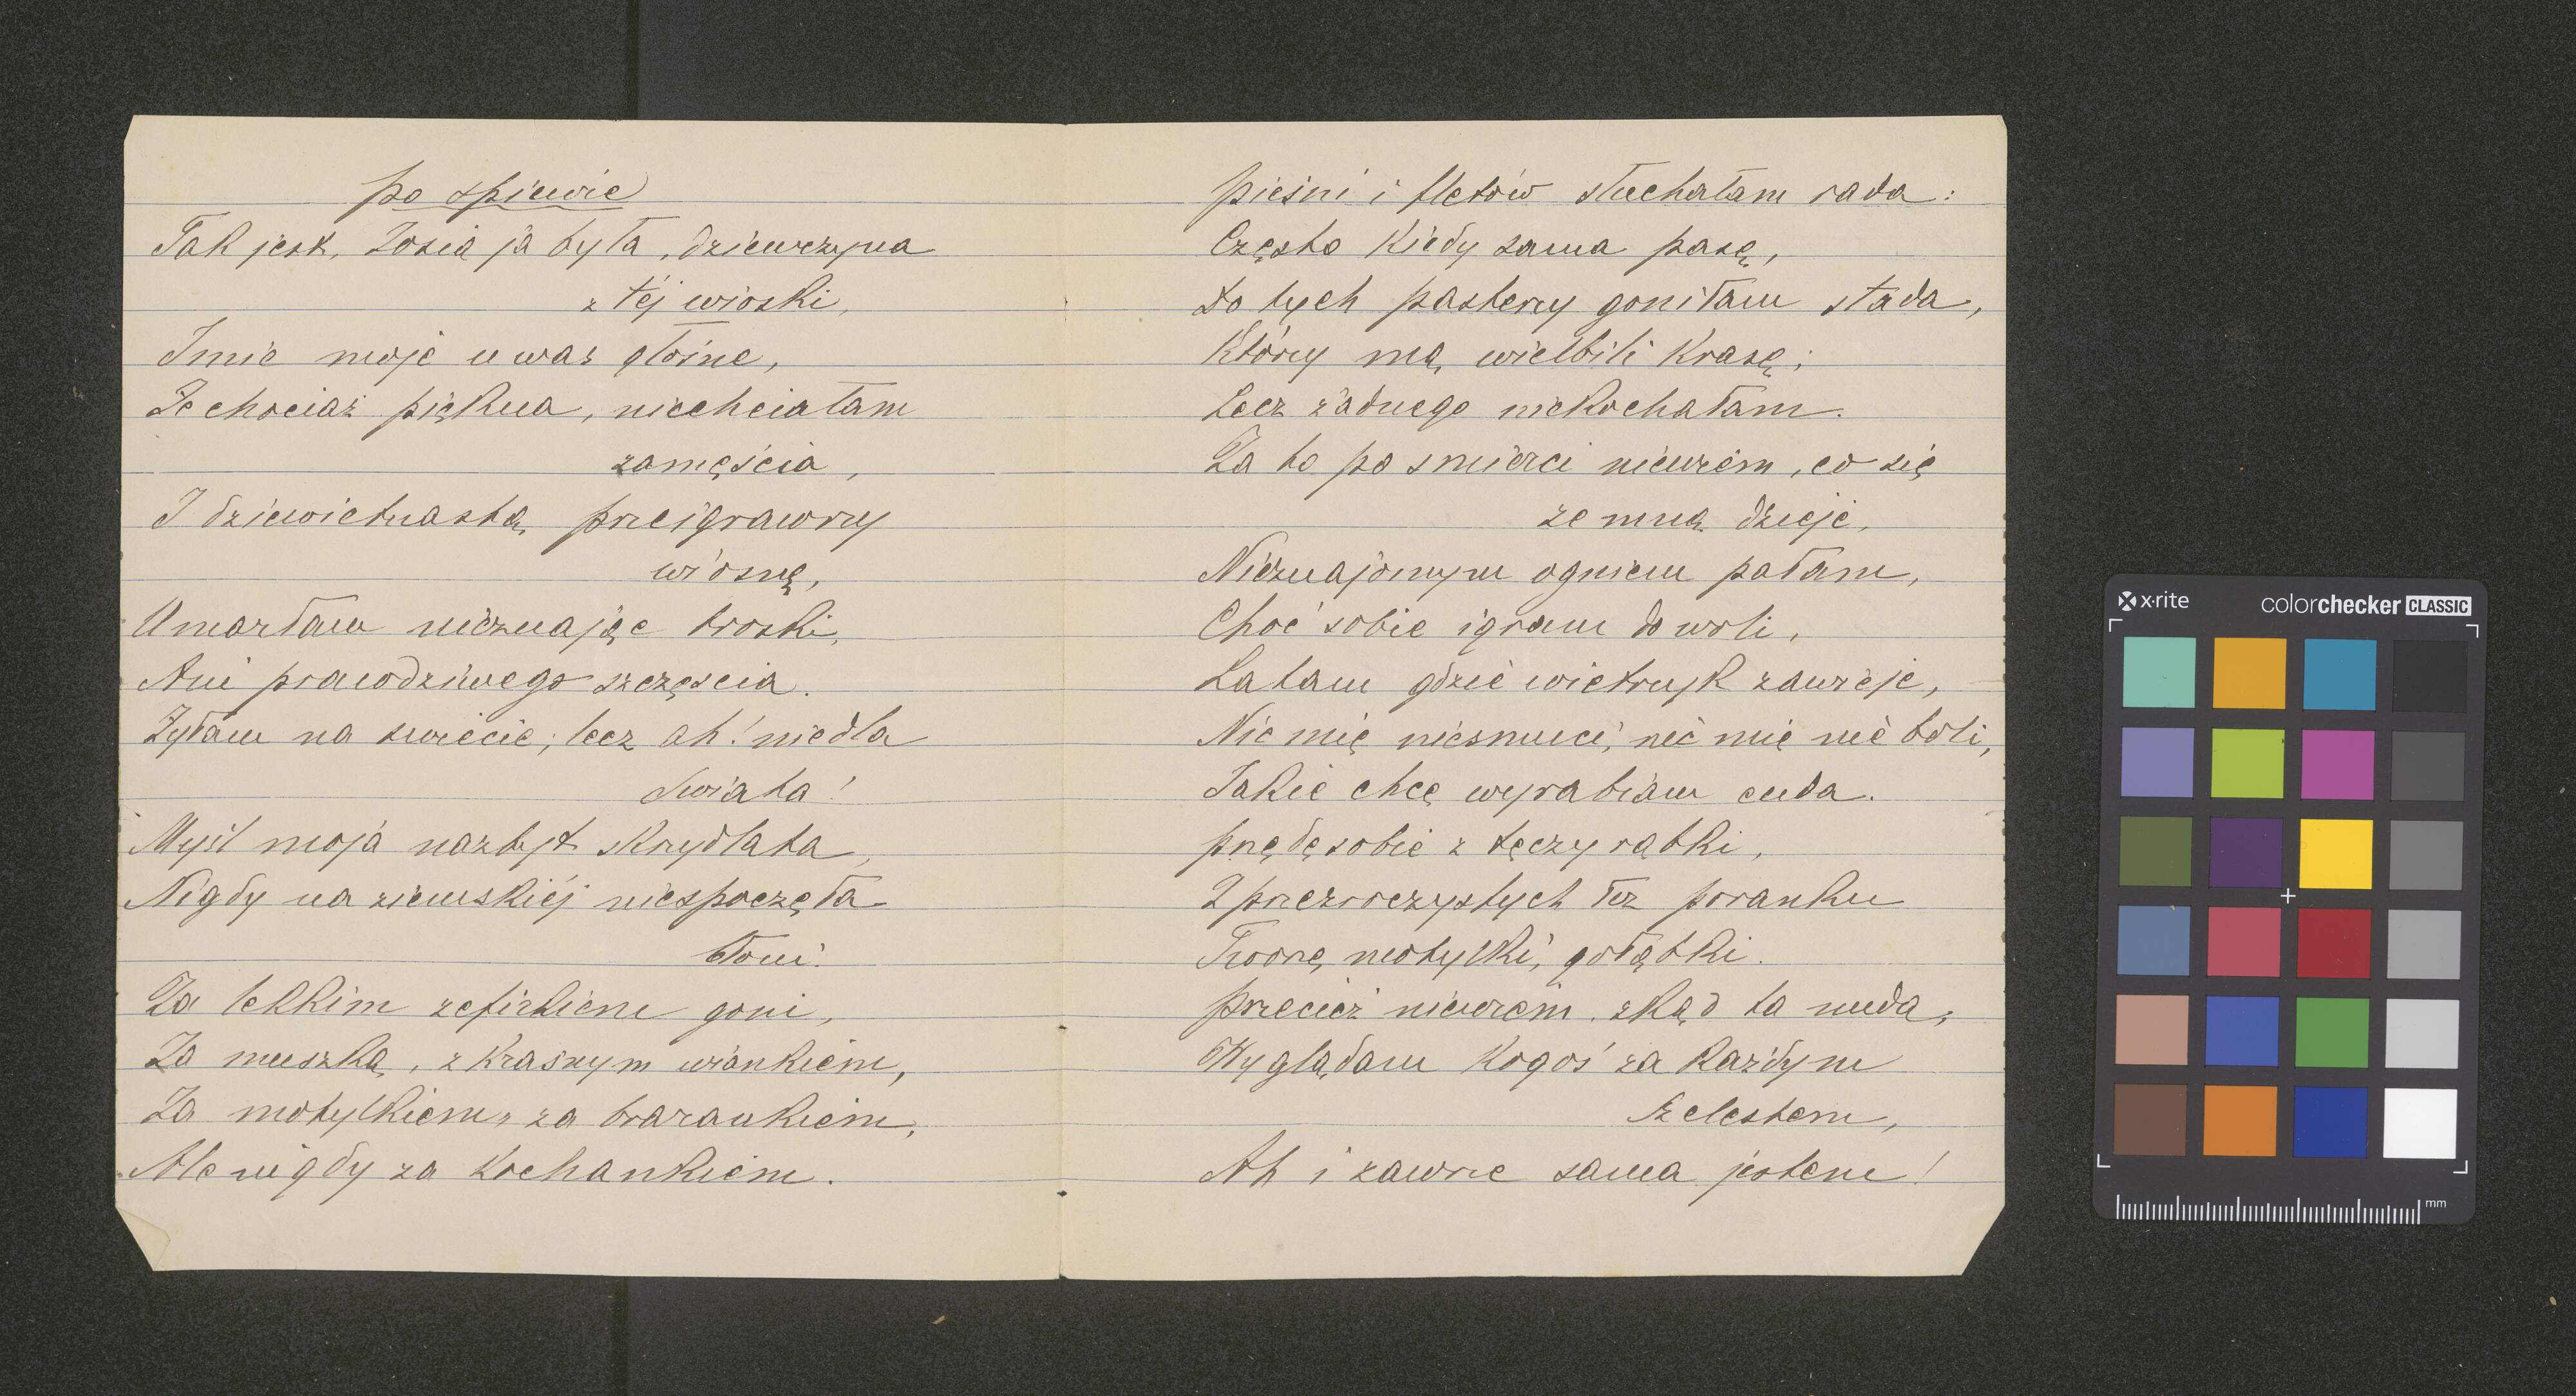 po spiewie
Tak jest, Zosią ja była, dziewczyna
z téj wioski,
Imie moje u was głośne,
Że chociaż piękna, niechciałam
zamęścia,
I dziewietnastą przeigrawszy
wiosnę,
Umarłam nieznając troski,
Ani prawdziwego szczęscia.
Żyłam na swiecie; lecz ah! niedla
swiata!
Myśl moja nazbyt skrzydlata,
Nigdy na ziemskiéj niespoczęła
błoni.
Za lekkim zefirkiem goni,
Za muszką, z krasnym wiankiem,
Za motylkiem, za barankiem,
Ale nigdy za kochankiem.
pieśni i fletów słuchałam rada:
Często kiedy sama pasę,
Do tych pasterzy goniłam stada,
Którzy mą wielbili krasę;
Lecz żadnego niekochałam.
Za to po smierci niewiem, co się
ze mną dzieje,
Nieznajomym ogniem pałam,
Choć sobie igram do woli,
Latam gdzie wietrzyk zawieje,
Nic mię niesmuci, nic mię nie boli,
Jakie chcę wyrabiam cuda.
przędę sobie z tęczy rąbki,
Z przezroczystych łez poranku
Tworzę motylki, gołąbki.
przecież niewiem, zkąd ta nuda,
Wyglądam kogoś za każdym
szelestem,
Ah i zawsze sama jestem!
x·rite
colorchecker CLASSIC
mm